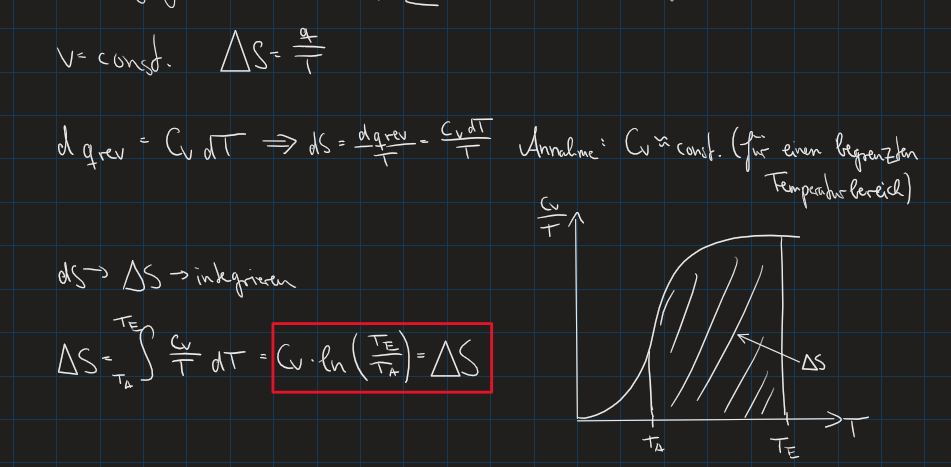 V = const. ΔS = q/T
d q_rev = C_V dT ⟹ dS = d q_rev/T = C_V dT/T Annahme: C_V ≈ const. (für einen begrenzten
Temperaturbereich)
C_V/T
dS → ΔS → integrieren
ΔS = ∫_{T_A}^{T_E} C_V/T dT = C_V · ln(T_E/T_A) = ΔS
ΔS
T
T_A T_E